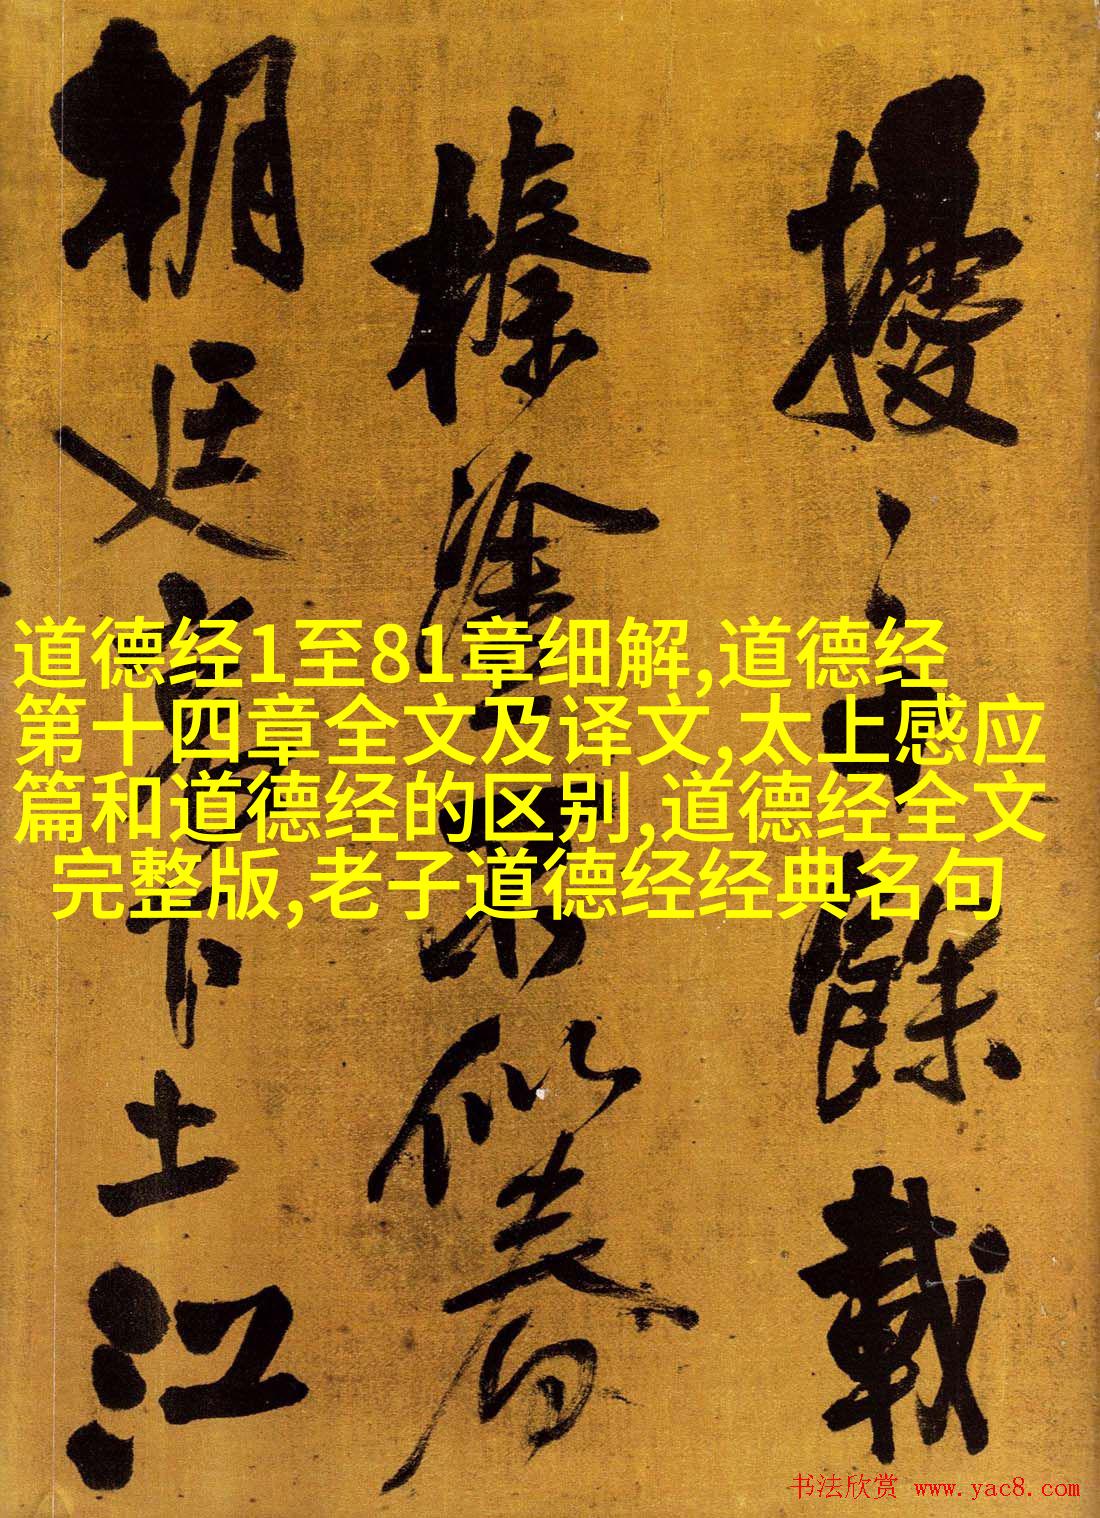 擾之餘載
榛塗
朝廷下土江
道德经1至81章细解,道德经
第十四章全文及译文,太上感应
篇和道德经的区别,道德经全文
完整版,老子道德经经典名句
书法欣赏 www.yac8.com